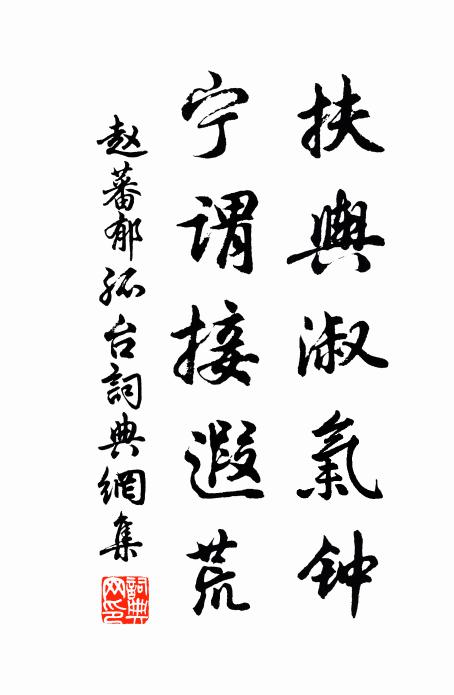 扶輿淑氣钟
宁谓接遐荒
赵蕃郁孤台詞典網集
詞典网印